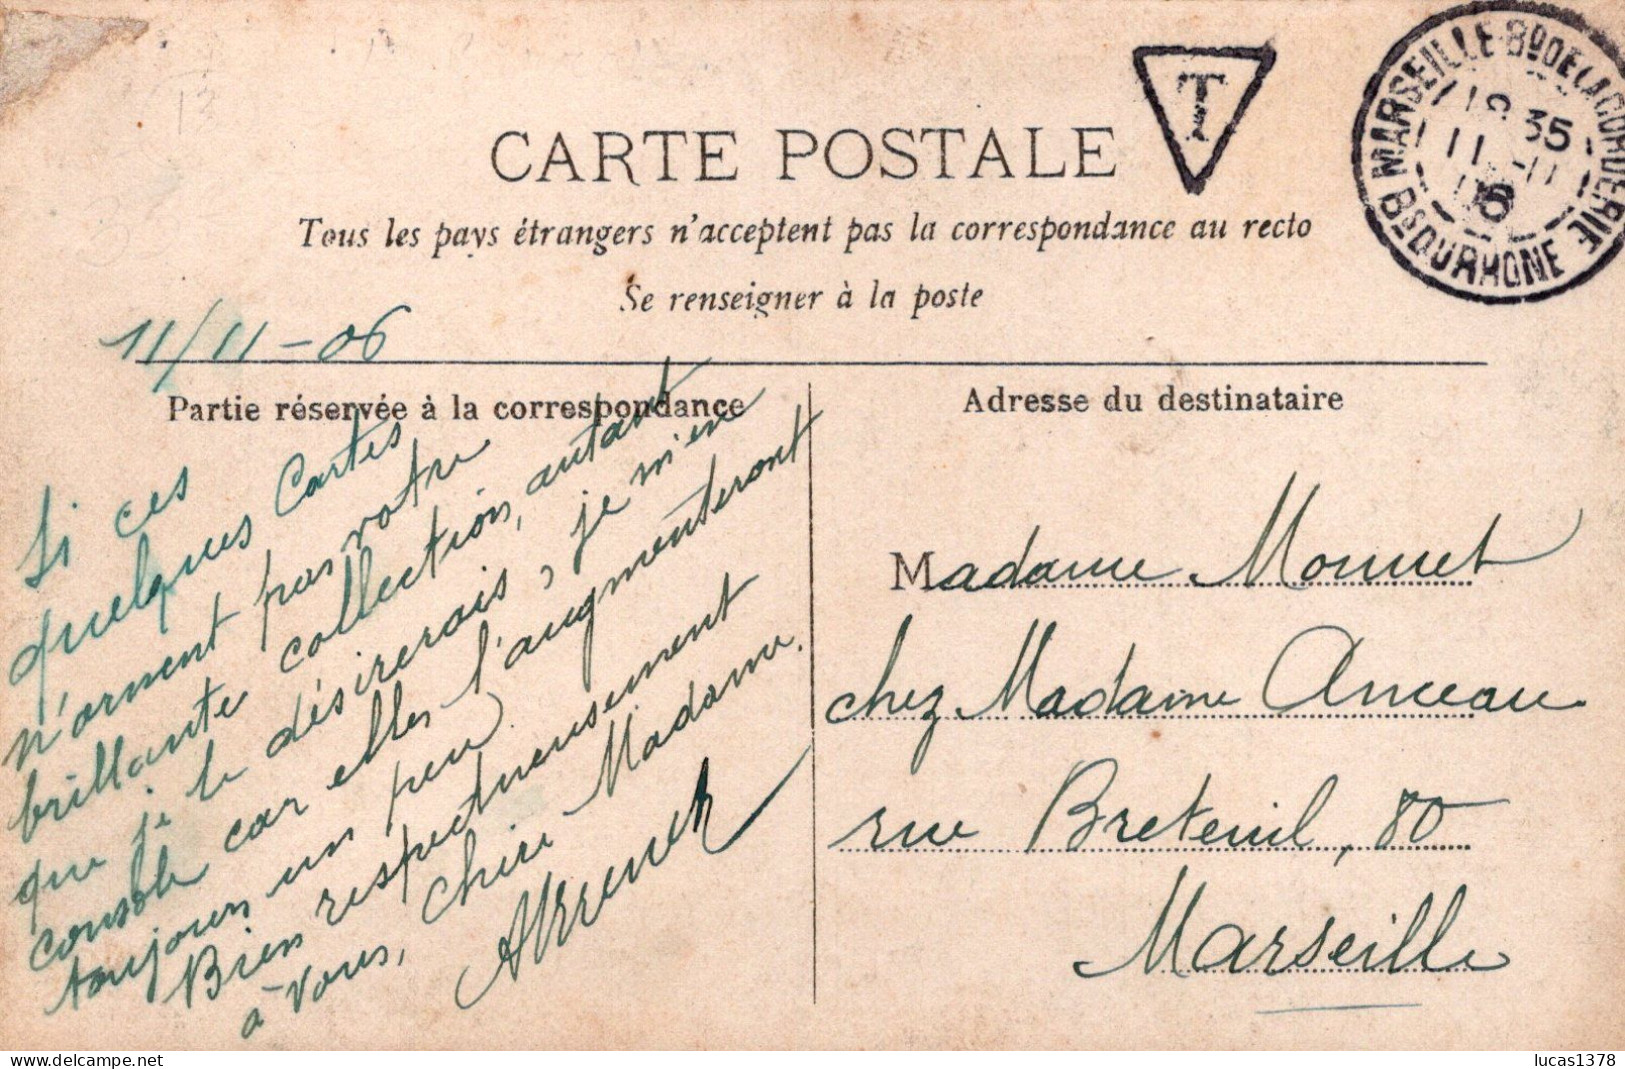 T
MARSEILLE Bd DE LA CORDERIE
18 35
11 -11
06
Bs DU RHONE
CARTE POSTALE
Tous les pays étrangers n'acceptent pas la correspondance au recto
Se renseigner à la poste
11/11-06
Partie réservée à la correspondance
Si ces
quelques Cartes
n'ornent pas votre
brillante collection, autant
que je le désirerais, je m'en
console car elles l'augmenteront
toujours un peu.
Bien respectueusement
à vous, chère Madame.
Adresse du destinataire
Madame Monnet
chez Madame Anceau
rue Breteuil, 80
Marseille
lucas1378